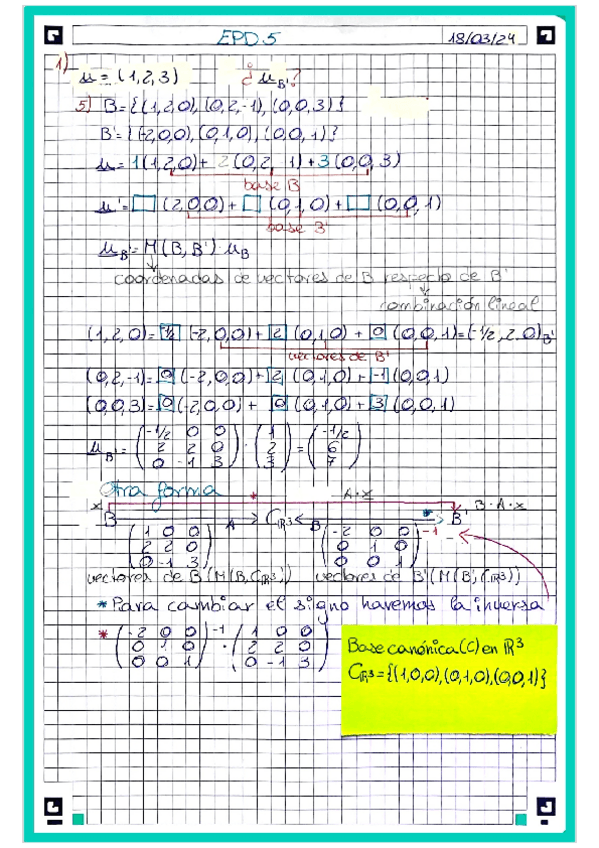 EPD.5 18/03/24
1)
u = (1,2,3) ¿u_B'?
5) B={(1,2,0),(0,2,-1),(0,0,3)}
B'={(-2,0,0),(0,1,0),(0,0,1)}
u=1(1,2,0)+ 2(0,2, 1)+3(0,0,3)
base B
u'=□(2,0,0)+□(0,1,0)+□(0,0,1)
base B'
u_B'=M(B,B')·u_B
coordenadas de vectores de B respecto de B'
combinación lineal
(1,2,0)=½(-2,0,0)+2(0,1,0)+0(0,0,1)=(-1/2,2,0)_B'
vectores de B'
(0,2,-1)=0(-2,0,0)+2(0,1,0)+-1(0,0,1)
(0,0,3)=0(-2,0,0)+0(0,1,0)+3(0,0,1)
-1/2 0 0 1 -1/2
u_B'=(2 2 0)·(2)=(6)
0 -1 3 3 7
Otra forma * A·x
x B A C_ℝ3 B * B' B·A·x
1 0 0 -2 0 0 -1
2 2 0 0 1 0
0 -1 3 0 0 1
vectores de B(M(B,C_ℝ3)) vectores de B'(M(B',C_ℝ3))
*Para cambiar el signo haremos la inversa
*(-2 0 0)-1 (1 0 0)
0 1 0 · 2 2 0
0 0 1 0 -1 3
Base canónica (C) en ℝ3
C_ℝ3={(1,0,0),(0,1,0),(0,0,1)}